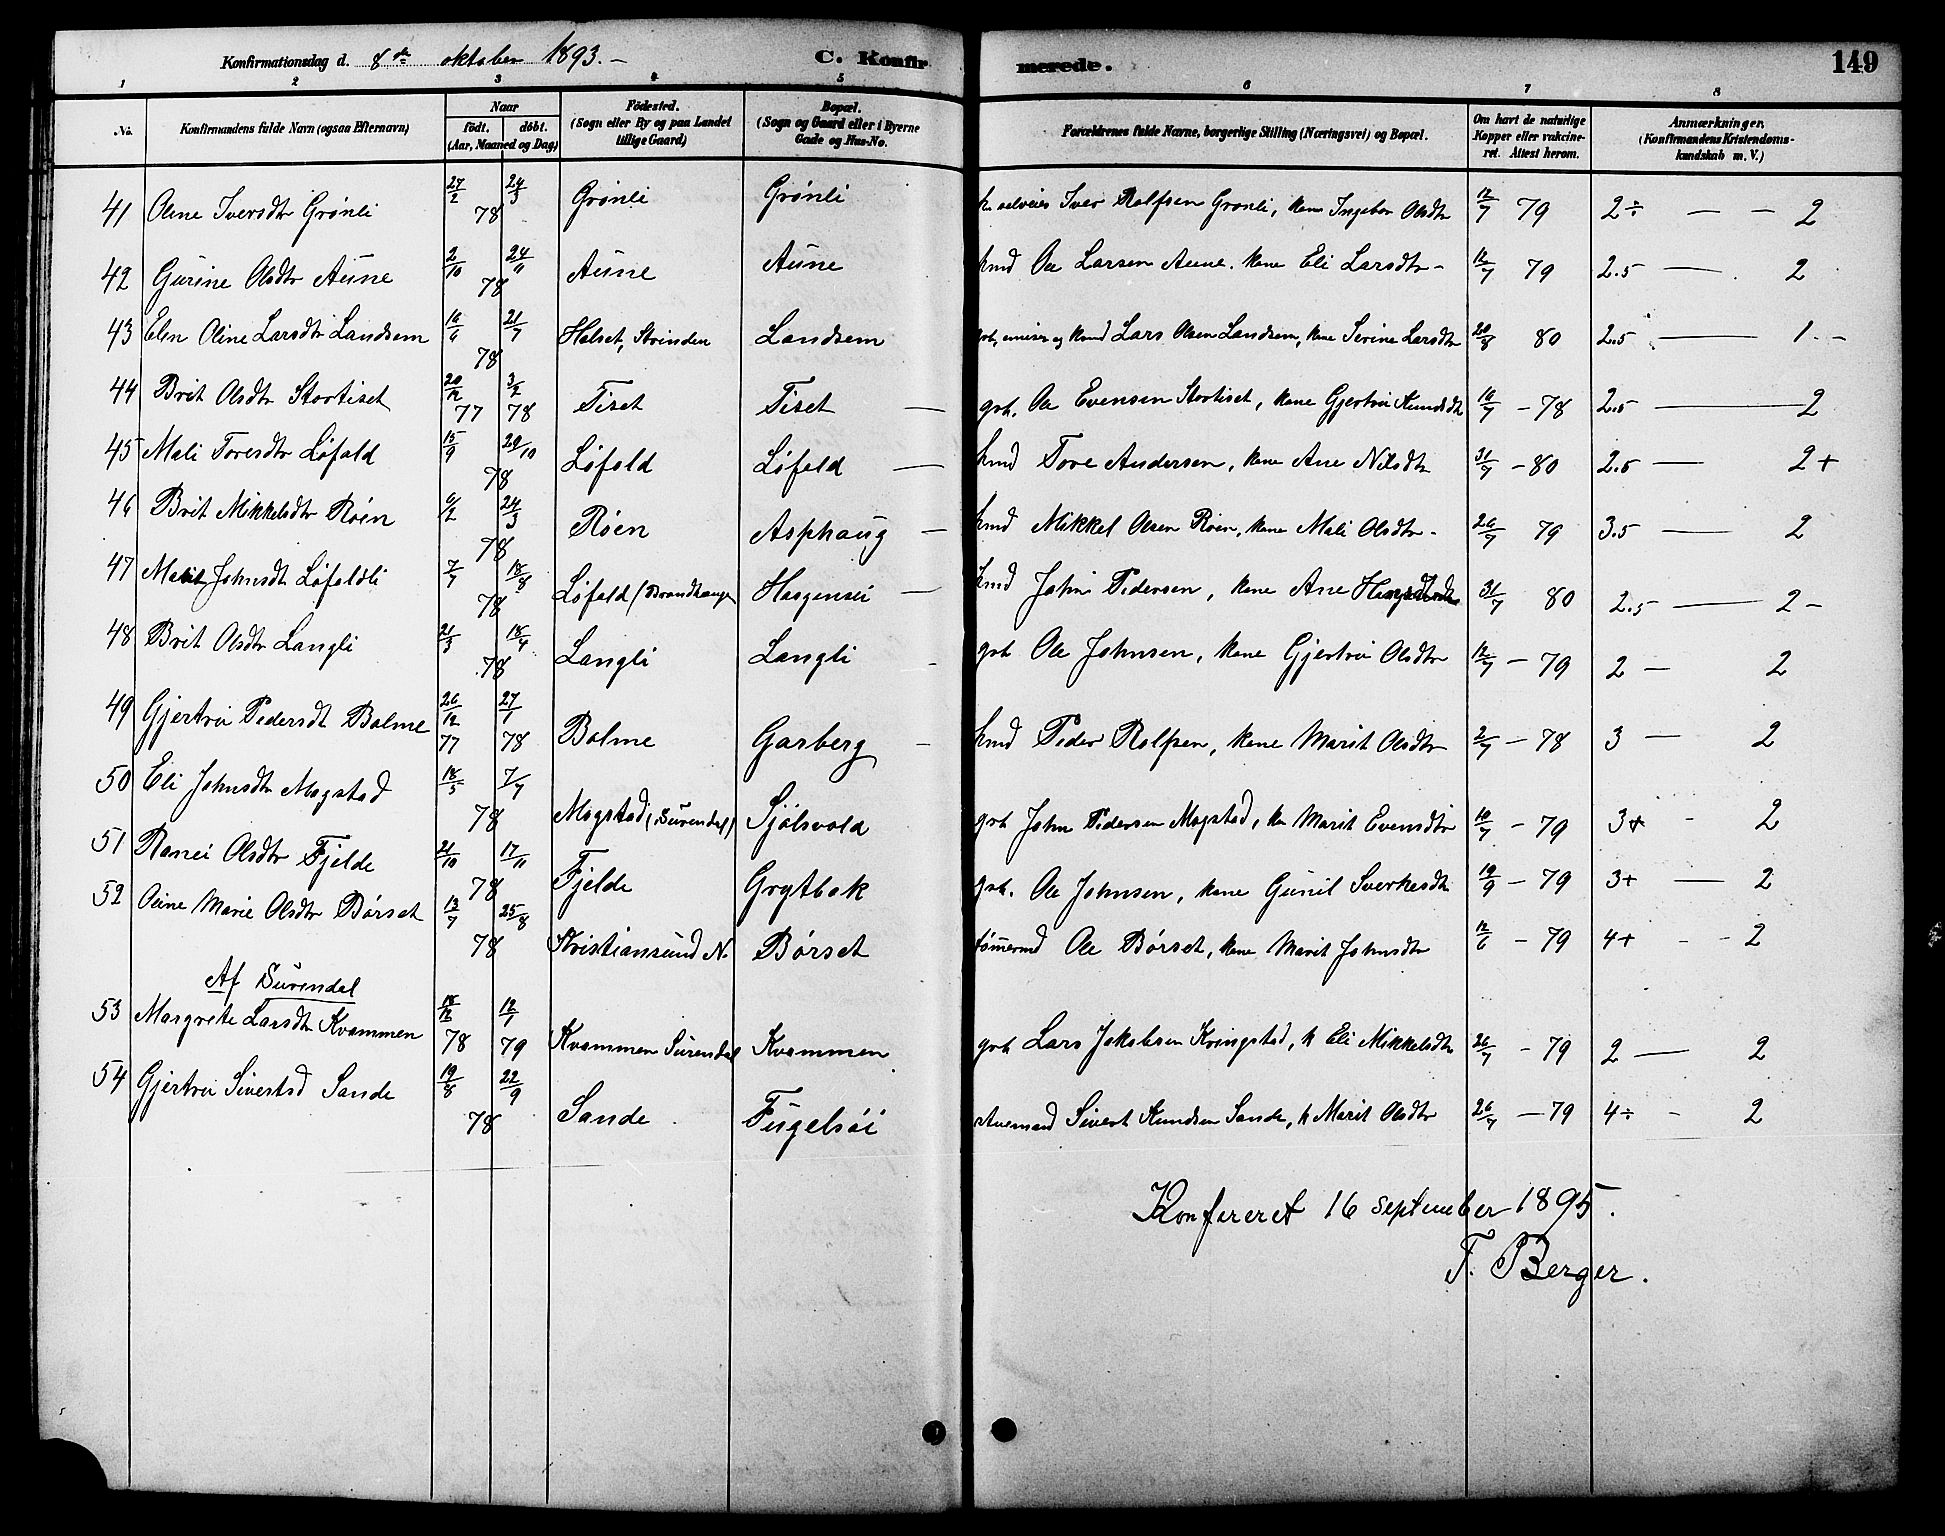 Konfirmationsdag d. 8de oktober 1893. –
C. Konfirmerede.
149
1 2 3 4 5 6 7 8
No. Konfirmandens fulde Navn (ogsaa Efternavn) Naar födt. döbt. (Aar, Maaned og Dag) Födested. (Sogn eller By og paa Landet tillige Gaard) Bopæl. (Sogn og Gaard eller i Byerne Gade og Hus-No. Forældrenes fulde Navne, borgerlige Stilling (Næringsvei) og Bopæl. Om havt de naturlige Kopper eller vakcineret. Attest herom. Anmærkninger. (Konfirmandens Kristendomskundskab m. V.)
41 Olene Iversdtr Grönli 27/2 24/3 78 Grönli Grönli Iver Rolfsen Grønli, kone Ingebor Olsdtr 12/7 79 2÷ – – 2
42 Gurine Olsdtr Aune 2/10 24/11 78 Aune Aune kmd Ole Larsen Aune. kone Eli Larsdtr – 12/7 79 2.5 – 2
43 Elen Oline Larsdtr Landsem 16/6 21/7 78 Halset, Strinden Landsem kmd Lars Olsen Landsem, kone Serine Larsdtr 20/8 80 2.5 – 1. –
44 Brit Olsdtr Stortiset 20/12 77 3/2 78 Tiset Tiset – grb. Ole Evensen Stortiset, kone Gjertru Knudsdt 16/7 – 78 2.5 – 2
45 Mali Toresdtr Löfald 15/9 20/10 78 Löfald Löfald – kmd Tore Andersen, kone Ane Nilsdtr 31/7 – 80 2.5 – 2+
46 Brit Mikkelsdtr Röen 6/2 24/3 78 Röen Asphaug – kmd Mikkel Olsen Röen, kone Mali Olsdtr – 26/7 79 3.5 – 2
47 Johnsdt Löfaldli 7/7 18/8 78 Löfald (Brandhaugen – kmd John Pedersen, kone Ane 31/7 80 2.5 – 2 –
48 Brit Olsdtr Langli 21/3 18/4 78 Langli Langli – grb Ole Johnsen, kone Gjertru Olsdtr 12/7 – 79 2 – 2
49 Gjertru Pedersdt Bolme 26/12 77 27/1 78 Bolme Garberg – kmd Peder Rolfsen, kone Marit Olsdtr 2/7 – 78 3 – 2
50 Eli Johnsdtr Mogstad 18/5 7/7 78 Mogstad (Surendal) Sjölsvold grb John Pedersen Mogstad, ko Marit Evensdtr 10/7 – 79 3+ – 2
51 Ranei Olsdtr Fjelde 21/10 17/11 78 Fjelde Grytbak grb. Ole Johnsen, kone Gunil Sverkesdt 19/9 – 79 3+ – 2
52 Marie Olsdtr Börset 13/7 25/8 78 Kristiansund N. Börset tömermd Ole Börset, kone Marit Johnsdtr 12/6 – 79 4+ – – 2
Af Surendal
53 Margrete Larsdtr Kvammen 18/12 78 12/1 79 Kvammen Surendal Kvammen grb Lars Jakobsen Kvingstad, k Eli Mikkelsdtr 26/7 – 79 2 – 2
54 Gjertru Sivertsd Sande 19/8 22/9 78 Sande Fugelsöi Sivert Knudsen Sande, k Marit Olsdtr 26/7 – 79 4÷ – 2
Konfereret 16 september 1895.
F. Berger.